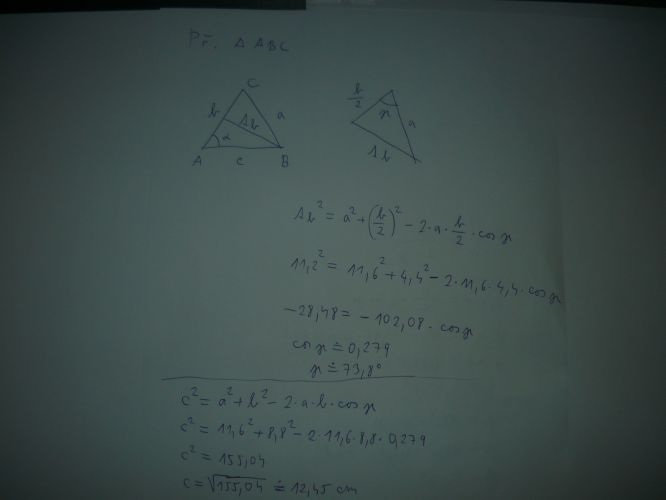 Př. Δ ABC
C
b
Δb
a
α
A
c
B
b/2
γ
a
Δb
Δb² = a² + (b/2)² - 2·a·b/2·cos γ
11,2² = 11,6² + 4,4² - 2·11,6·4,4·cos γ
-28,48 = -102,08·cos γ
cos γ ≐ 0,279
γ ≐ 73,8°
c² = a² + b² - 2·a·b·cos γ
c² = 11,6² + 8,8² - 2·11,6·8,8·0,279
c² = 155,04
c = √155,04 ≐ 12,45 cm